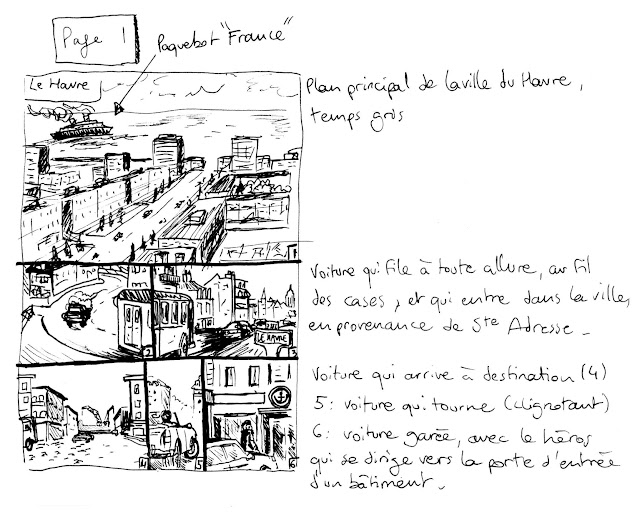 Page 1
Paquebot "France"
Le Havre
Plan principal de la ville du Havre,
temps gris
1
Voiture qui file à toute allure, au fil
des cases, et qui entre dans la ville,
en provenance de Ste Adresse -
LE HAVRE
2
3
Voiture qui arrive à destination (4)
5 : voiture qui tourne (clignotant)
6 : voiture garée, avec le héros
qui se dirige vers la porte d'entrée
d'un bâtiment.
4
5
6